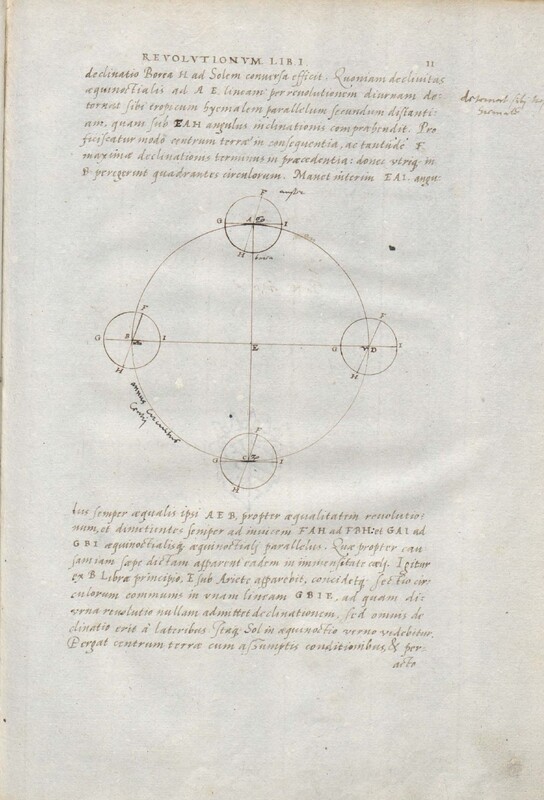 REVOLUTIONVM. LIB. I. 11
declinatio Borea H ad Solem conversa efficit. Quoniam declivitas
æquinoctialis ad A E. lineam per revolutionem diurnam de:
tornat sibi tropicum hyemalem parallelum secundum distanti:
am, quam sub EAH angulus inclinationis comprehendit. Pro
ficiscatur modo centrum terræ in consequentia, ac tantundem F.
maximæ declinationis terminus in præcedentia: donec utrique in
B peregerint quadrantes circulorum. Manet interim EAI. angu:
F
G A I
H borea
F
G B I
H
E
F
G D I
H
F
G C I
H
lus semper æqualis ipsi AEB, propter æqualitatem revolutio:
num, et dimetientes semper ad invicem FAH ad FBH: et GAI ad
GBI æquinoctialisque æquinoctiali parallelus. Qua propter cau
sam iam sæpe dictam apparent eadem in immensitate cæli. Igitur
ex B Libræ principio, E sub Ariete apparebit, concidetque sectio cir
culorum communis in unam lineam GBIE, ad quam di:
urna revolutio nullam admittet declinationem, sed omnis de
clinatio erit à lateribus. Itaque Sol in æquinoctio verno videbitur.
Pergat centrum terræ cum assumptis conditionibus, & per:
acto